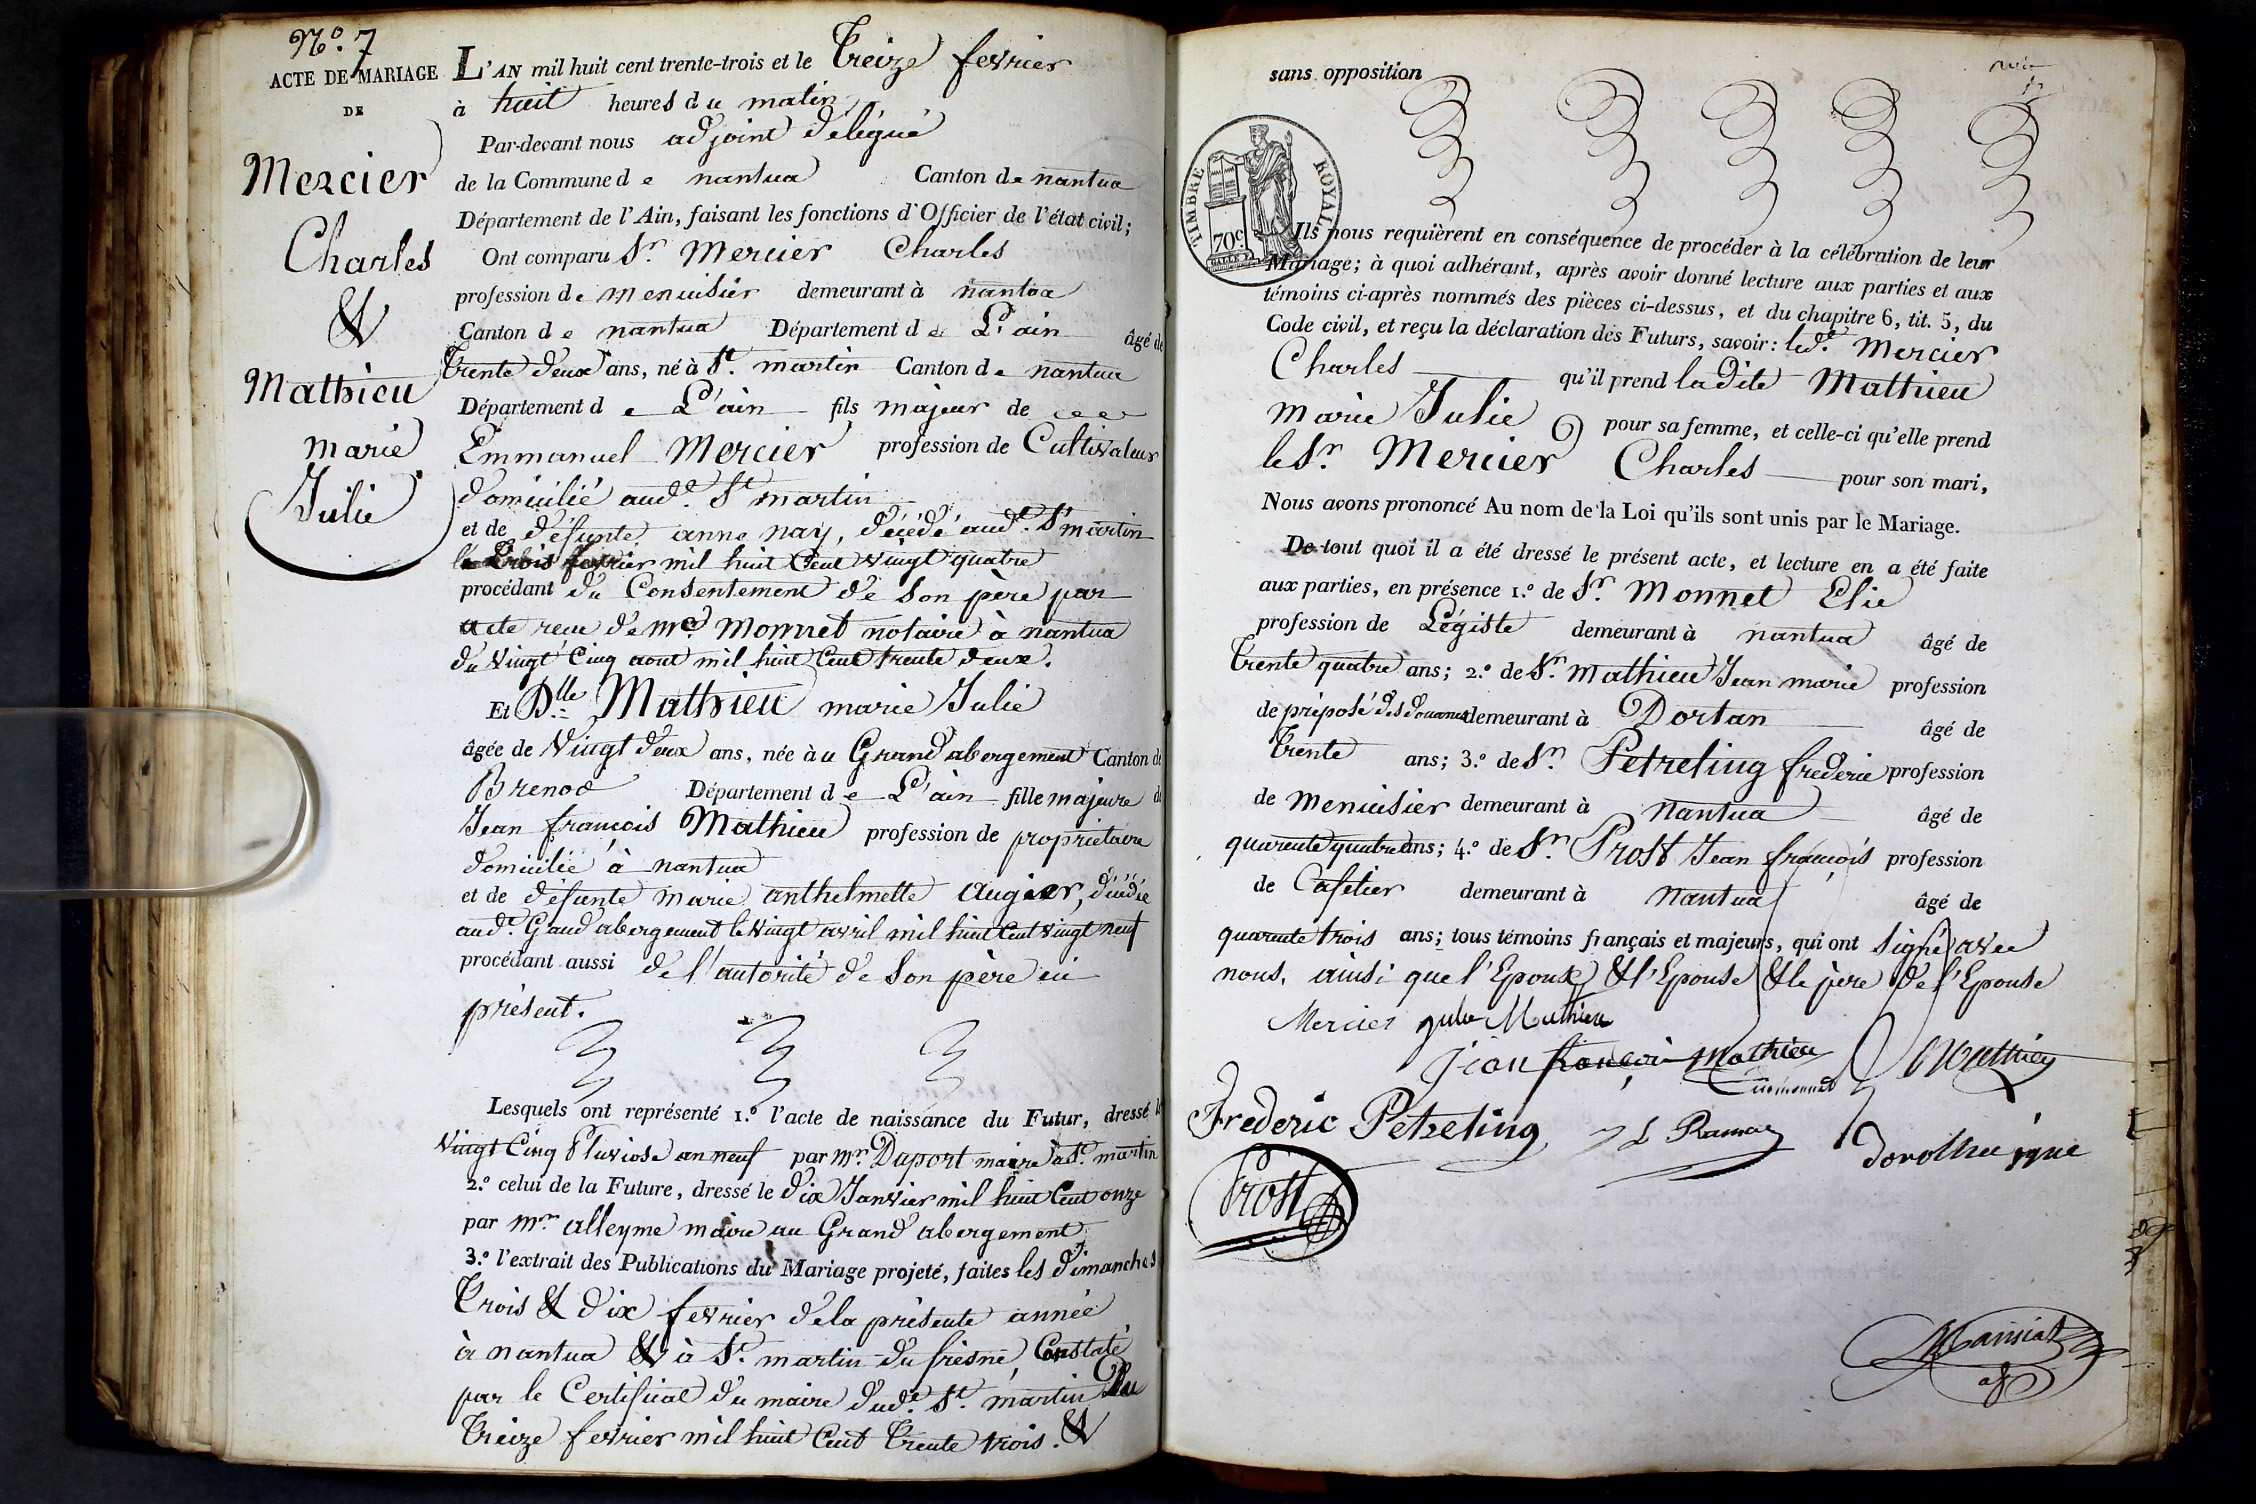 N.° 7
ACTE DE MARIAGE
DE
Mercier
Charles
&
Mathieu
marie
Julie
L'AN mil huit cent trente-trois et le Treize fevrier
à huit heures du matin
Par-devant nous adjoint délégué
de la Commune de nantua Canton de nantua
Département de l'Ain, faisant les fonctions d'Officier de l'état civil;
Ont comparu Sr. Mercier Charles
profession de menuisier demeurant à nantua
Canton de nantua Département de L'ain âgé de
Trente deux ans, né à St. martin Canton de nantua
Département de L'ain fils majeur de
Emmanuel Mercier profession de Cultivateur
domicilié aud.e St martin
et de défunte anne nay, décédé aud.e St martin
le trois fevrier mil huit Cent vingt quatre
procédant du Consentement de Son père par
acte reçu de me Monnet notaire à nantua
du vingt Cinq aout mil huit Cent trente deux.
Et Dlle Mathieu marie Julie
âgée de vingt deux ans, née à u Grand abergement Canton de
Brenod Département de L'ain fille majeure de
Jean françois Mathieu profession de propriétaire
domicilié à nantua
et de défunte marie anthelmette augier, décédée
aud.e Grand abergement le vingt avril mil huit Cent vingt neuf
procédant aussi de l'autorité de Son père ici
présent.
Lesquels ont représenté 1.° l'acte de naissance du Futur, dressé le
vingt Cinq Pluviose an neuf par mr. Duport maire à St. martin
2.° celui de la Future, dressé le dix Janvier mil huit Cent onze
par mr. alleyme maire au Grand abergement
3.° l'extrait des Publications du Mariage projeté, faites les dimanches
Trois & dix fevrier de la présente année
à nantua & à St. martin du fresne, Constaté
par le Certificat du maire dud.e St. martin Du
Treize fevrier mil huit Cent Trente trois. &
sans opposition
TIMBRE ROYAL
70c
Ils nous requièrent en conséquence de procéder à la célébration de leur
Mariage; à quoi adhérant, après avoir donné lecture aux parties et aux
témoins ci-après nommés des pièces ci-dessus, et du chapitre 6, tit. 5, du
Code civil, et reçu la déclaration des Futurs, savoir: led.e Mercier
Charles qu'il prend la dite Mathieu
marie Julie pour sa femme, et celle-ci qu'elle prend
le Sr. Mercier Charles pour son mari,
Nous avons prononcé Au nom de la Loi qu'ils sont unis par le Mariage.
De tout quoi il a été dressé le présent acte, et lecture en a été faite
aux parties, en présence 1.° de Sr. Monnet Elie
profession de Légiste demeurant à nantua âgé de
Trente quatre ans; 2.° de Sr. Mathieu Jean marie profession
de préposé des douanes demeurant à Dortan âgé de
trente ans; 3.° de Sr. Petreling frederic profession
de menuisier demeurant à nantua âgé de
quarente quatre ans; 4.° de Sr. Prost Jean françois profession
de Cafetier demeurant à Nantua âgé de
quarente trois ans; tous témoins français et majeurs, qui ont signé avec
nous, ainsi que l'Epoux & l'Epouse & le père de l'Epouse
Mercier julie Mathieu
jean françois mathieu Mathieu
Frederic Petreling
Prost